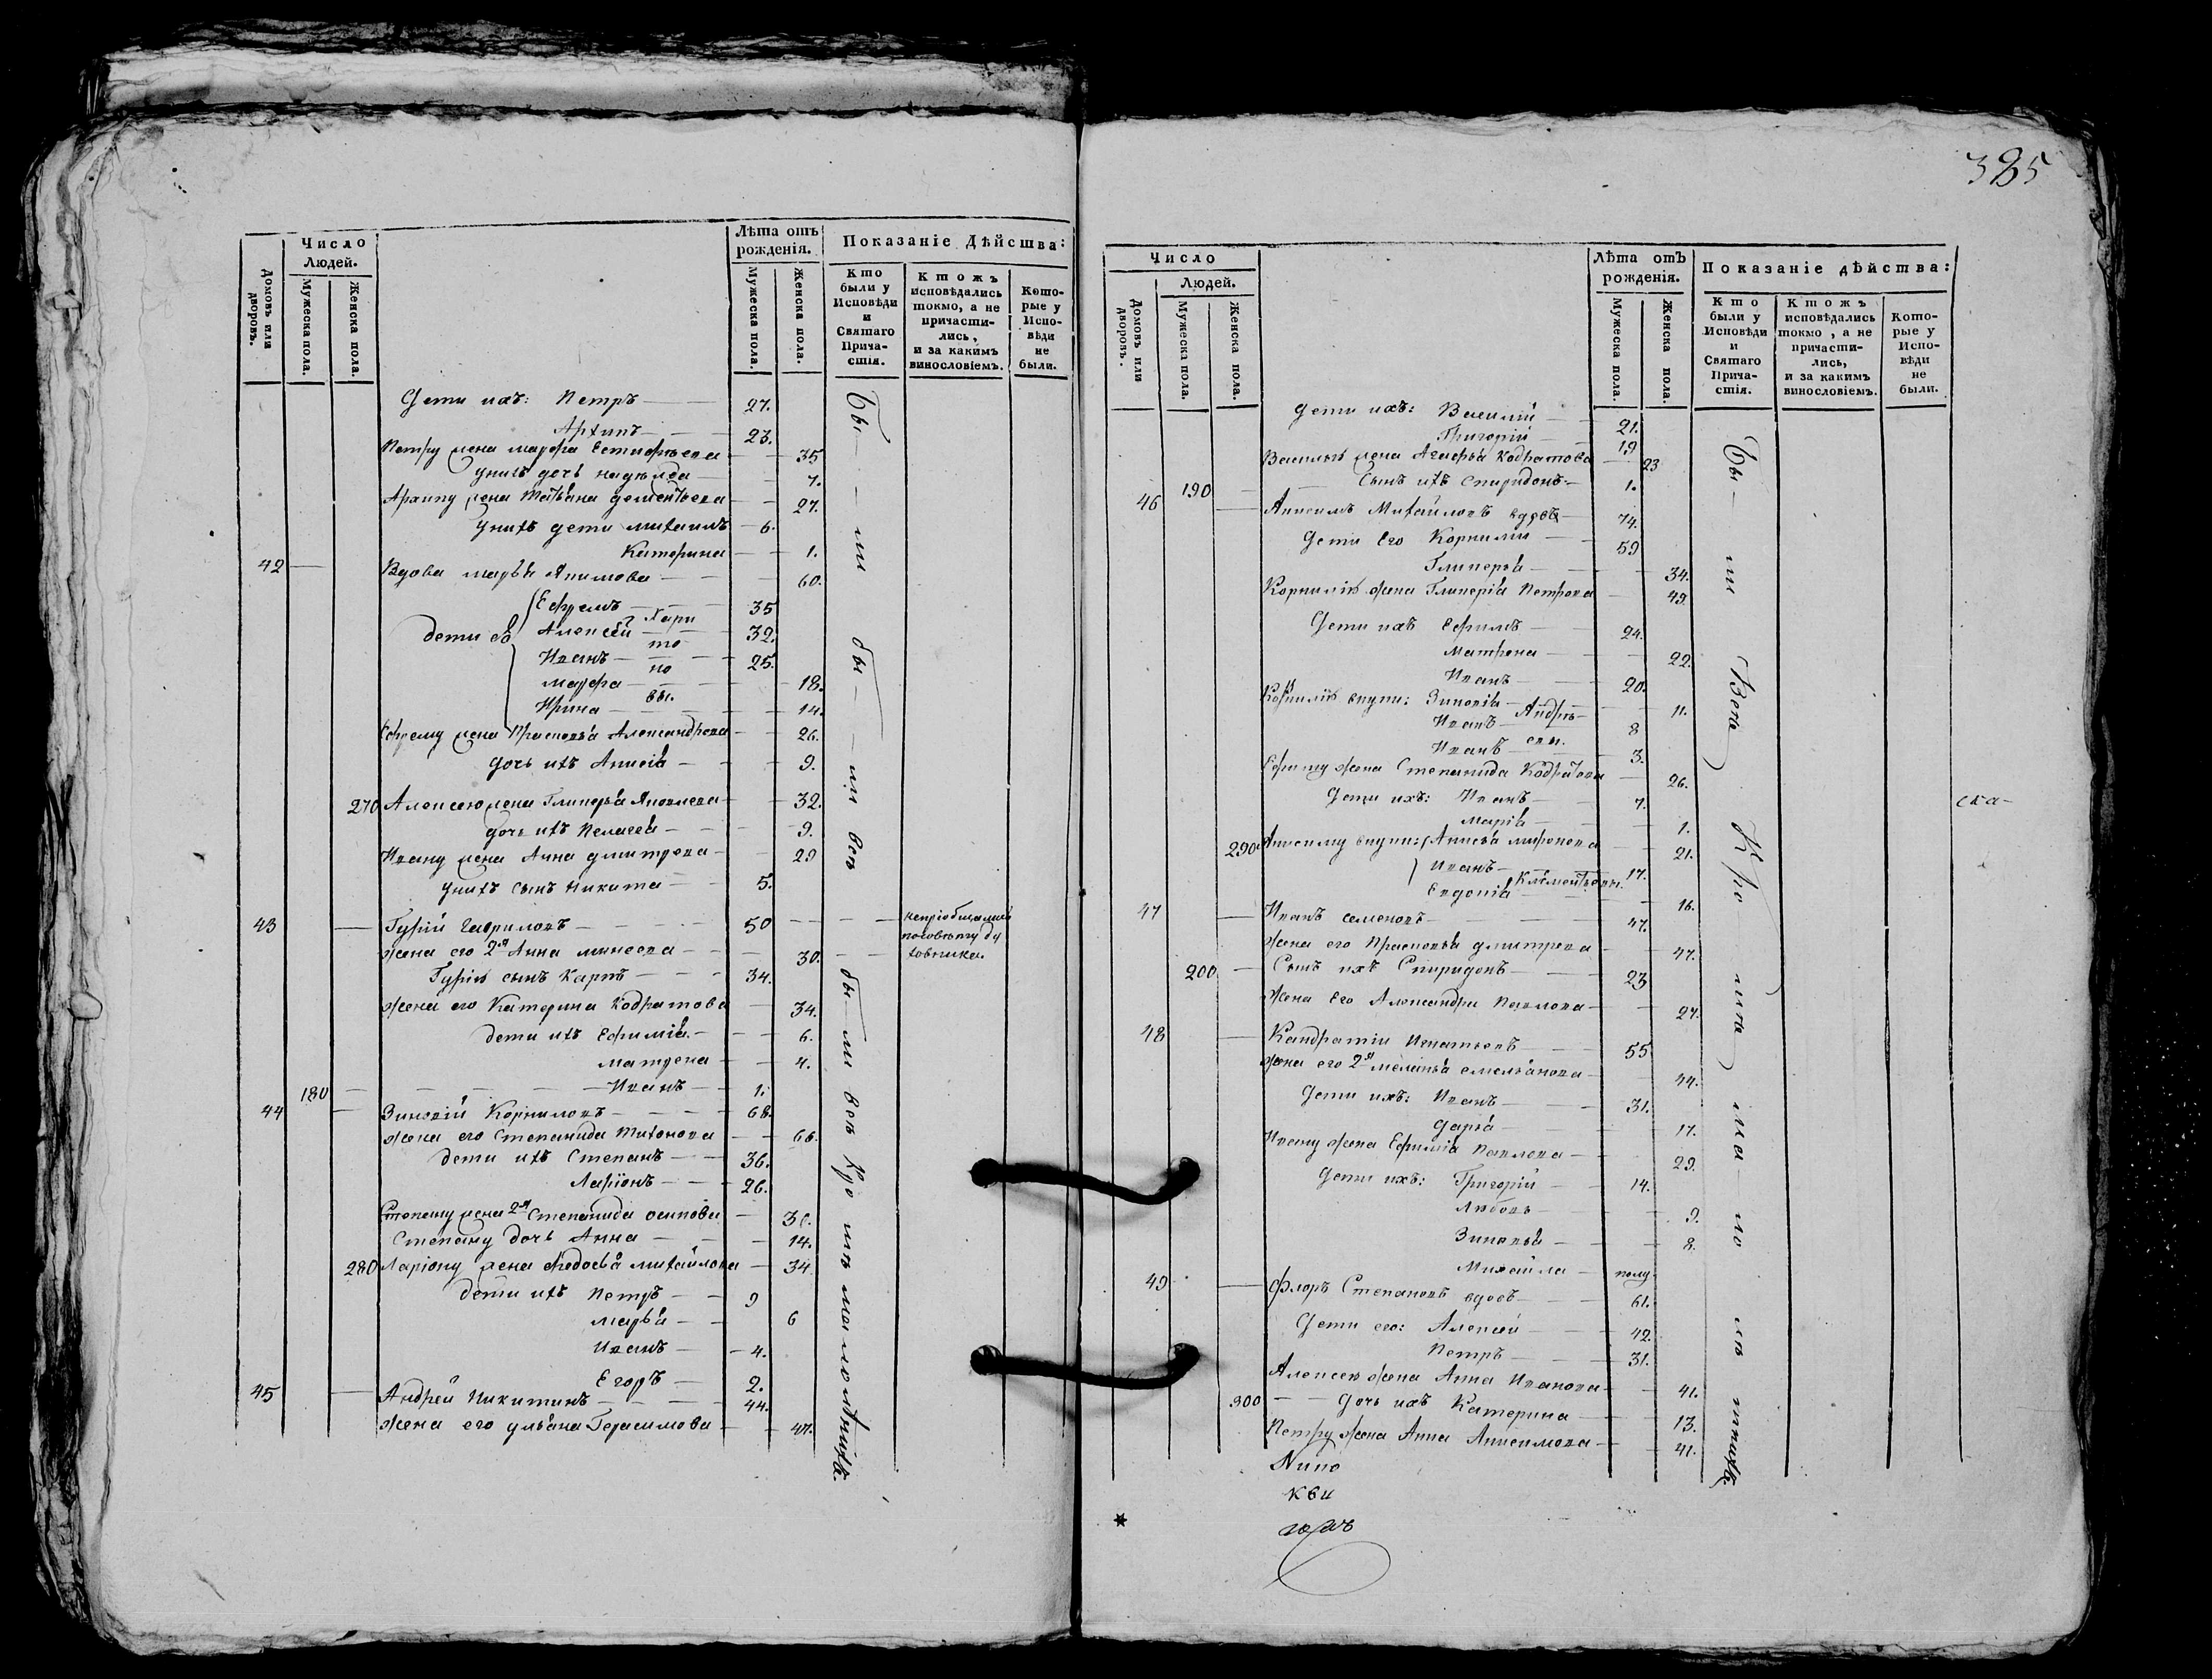 385
Число
Людей.
Лѣта отъ
рожденія.
Показаніе Дѣйства:
Домовъ или
дворовъ.
Мужеска пола.
Женска пола.
Мужеска пола.
Женска пола.
Кто
были у
Исповѣди
и
Святаго
Прича-
стія.
Ктожъ
исповѣдались
токмо, а не
причасти-
лись,
и за какимъ
винословіемъ.
Кото-
рые у
Испо-
вѣди
не
были.
Дети ихъ: Петръ 27.
Архипъ 23.
Петру жена марфа 35
унихъ дочь надежда 7.
Архипу жена Татьяна дементьева 27.
унихъ дети михаилъ 6.
Катерина 1.
42 Вдова марья Якимова 60.
дети ея Ефремъ 35
Алексѣй Хари 32.
Иванъ то 25.
марфа но 18.
Ирина вы. 14.
Ефрему жена Прасковья Александрова 26.
дочь ихъ Анисія 9.
270 Алексею жена Гликерья Яковлева 32.
дочь ихъ Пелагея 9.
Ивану жена Анна дмитрева 29
унихъ сынъ Никита 5.
43 Гурій Гавриловъ 50
непріобщались
посовѣту ду
ховника.
жена его 2я Анна 30.
Гурія сынъ Карпъ 34.
жена его Катерина Кодратова 34.
дети ихъ Ефимія 6.
матрена 4.
180 Иванъ 1.
44 Зиновій Корниловъ 68.
жена его Степанида Тихонова 66.
дети ихъ Степанъ 36.
Ларіонъ 26.
Степану жена 2я Степанида осипова 36.
Степану дочь Анна 14.
280 Ларіону жена Федосья михайлова 34
дети ихъ Петръ 9
марья 6
Иванъ 4.
Егоръ 2.
45 Андрей Никитинъ 44.
жена его ульяна Герасимова 47.
Бы-ли
бы-ли всѣ
бы-ли всѣ кромѣ малолѣтныхъ.
Число
Людей.
Лѣта отъ
рожденія.
Показаніе дѣйства:
Домовъ или
дворовъ.
Мужеска пола.
Женска пола.
Мужеска пола.
Женска пола.
Кто
были у
Исповѣди
и
Святаго
Прича-
стія.
Ктожъ
исповѣдались
токмо, а не
причасти-
лись,
и за какимъ
винословіемъ.
Кото-
рые у
Испо-
вѣди
не
были.
дети ихъ: Василій 21.
Григорій 19
Василью жена Агафья Кодратова 23
190 Сынъ ихъ Спиридонъ 1.
46 Анисимъ Михайловъ вдовъ 74.
дети Его Корнилій 59
Гликерья 34.
Корнилію жена Гликерія Петрова 49.
Дети ихъ Ефимъ 24.
Матрона 22.
Иванъ 20.
Корнилія внуки: Зиновія 11.
Иванъ Андрѣ 8
Иванъ евы. 3.
Ефиму жена Степанида Кодратова 26.
Дети ихъ: Иванъ 7.
Марія 1.
290 Анисиму внуки: Анисья миронова 21.
Иванъ 17.
Евдокія Клементьевы. 16.
47 Иванъ семеновъ 47.
жена его Прасковья дмитрева 47.
200 Сынъ ихъ Спиридонъ 23
Жена Его Александра Павлова 27.
48 Кандратій Игнатьевъ 55
жена его 2я меланья емельянова 44.
Дети ихъ: Иванъ 31.
дарья 17.
Ивану жена Ефимія Павлова 29.
Дети ихъ: Григорій 14.
Любовь 9.
Зиновья 8.
Михайла полу
49 Флоръ Степановъ вдовъ 61.
Дети его: Алексей 42.
Петръ 31.
Алексею жена Анна Иванова 41.
300 Дочь ихъ Катерина 13.
Петру жена Анна Анисимова 41.
Бы-ли Всѣ Кромѣ малолѣтныхъ.